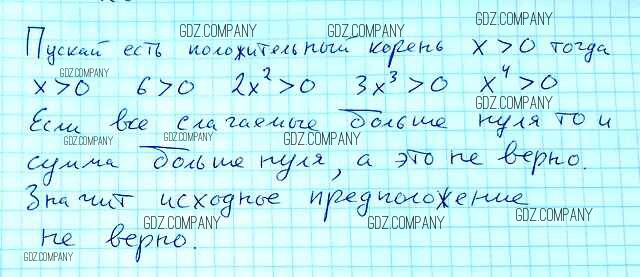 Пускай есть положительный корень x > 0 тогда
x > 0 6 > 0 2x² > 0 3x³ > 0 x⁴ > 0
Если все слагаемые больше нуля то и
сумма больше нуля, а это не верно.
Значит исходное предположение
не верно.
GDZ.COMPANY
GDZ.COMPANY
GDZ.COMPANY
GDZ.COMPANY
GDZ.COMPANY
GDZ.COMPANY
GDZ.COMPANY
GDZ.COMPANY
GDZ.COMPANY
GDZ.COMPANY
GDZ.COMPANY
GDZ.COMPANY
GDZ.COMPANY